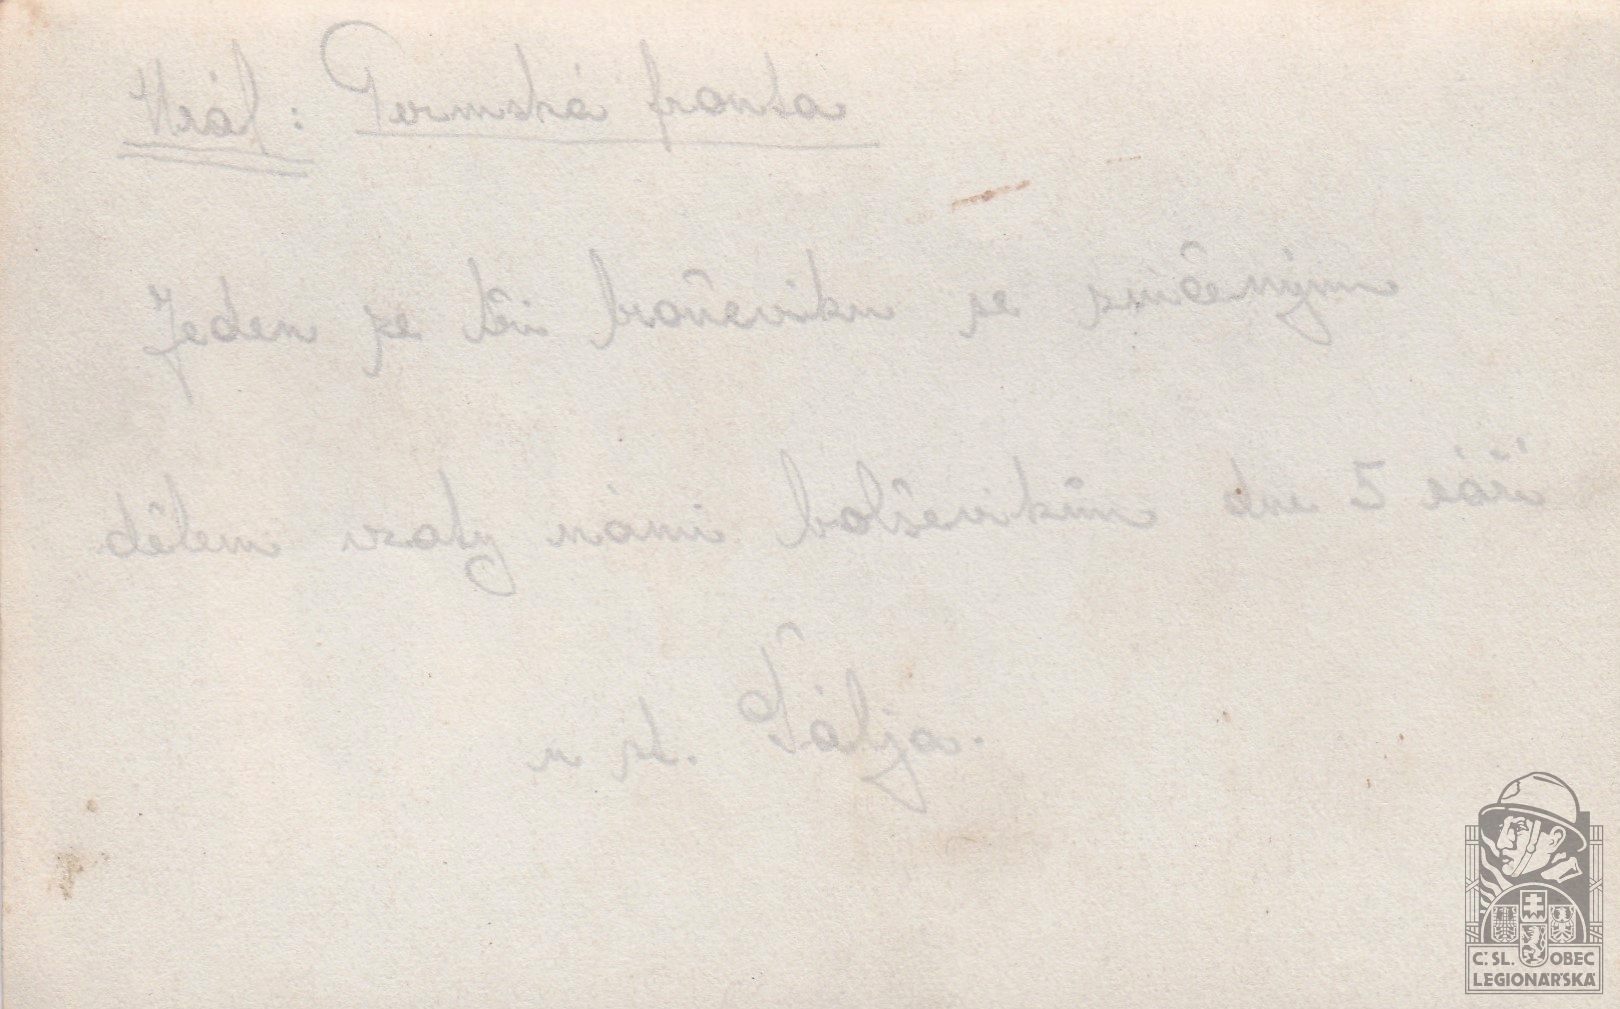 Urál: Permská fronta
Jeden ze tří broňeviku se zničeným
dělem vzatý námi bolševikům dne 5 září
u st. Šálja.
Č.SL. OBEC
LEGIONÁŘSKÁ